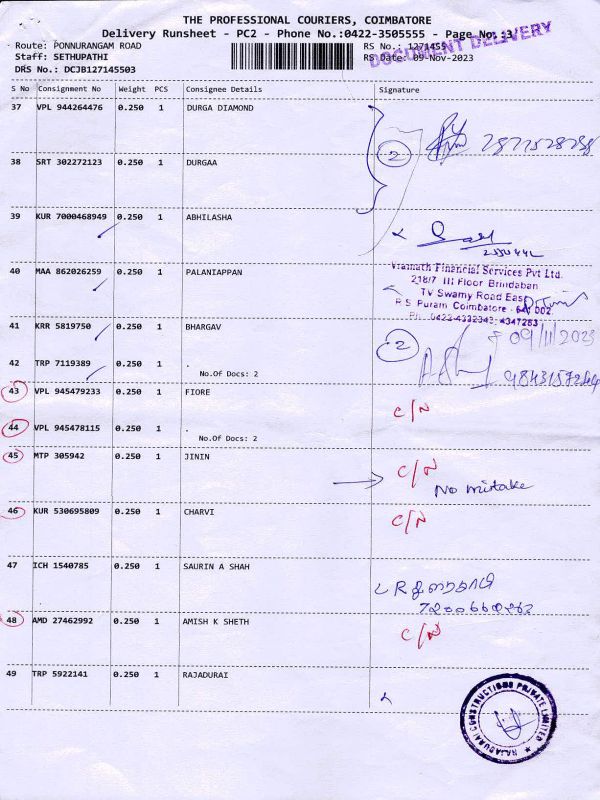 THE PROFESSIONAL COURIERS, COIMBATORE
Delivery Runsheet - PC2 - Phone No.:0422-3505555 - Page No.:3/
DOCUMENT DELIVERY
Route: PONNURANGAM ROAD RS No.: 1271455
Staff: SETHUPATHI RS Date: 09-Nov-2023
DRS No.: DCJB127145503
S No Consignment No Weight PCS Consignee Details Signature
37 VPL 944264476 0.250 1 DURGA DIAMOND
2
38 SRT 302272123 0.250 1 DURGAA
39 KUR 7000468949 0.250 1 ABHILASHA
40 MAA 862026259 0.250 1 PALANIAPPAN
Vramath Financial Services Pvt Ltd.
218/7 III Floor Brindaban
TV Swamy Road East
R S Puram Coimbatore - 641 002
Ph: 0422-4332343, 4347283
41 KRR 5819750 0.250 1 BHARGAV
2 09/11/2023
42 TRP 7119389 0.250 1 .
No.Of Docs: 2
43 VPL 945479233 0.250 1 FIORE
C/N
44 VPL 945478115 0.250 1 .
No.Of Docs: 2
45 MTP 305942 0.250 1 JININ
C/N
No mistake
46 KUR 530695809 0.250 1 CHARVI
C/N
47 ICH 1540785 0.250 1 SAURIN A SHAH
48 AMD 27462992 0.250 1 AMISH K SHETH
C/N
49 TRP 5922141 0.250 1 RAJADURAI
RAJADURAI CONSTRUCTIONS PRIVATE LIMITED